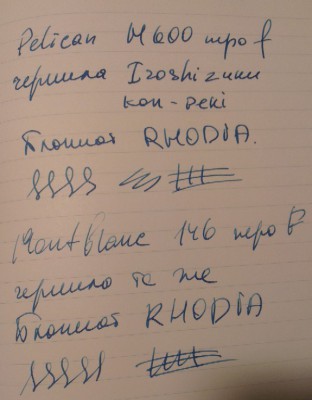 Pelican M600 перо f
чернила Iroshizuku
kon-peki
Блокнот RHODIA.
Montblanc 146 перо F
чернила те же
Блокнот RHODIA